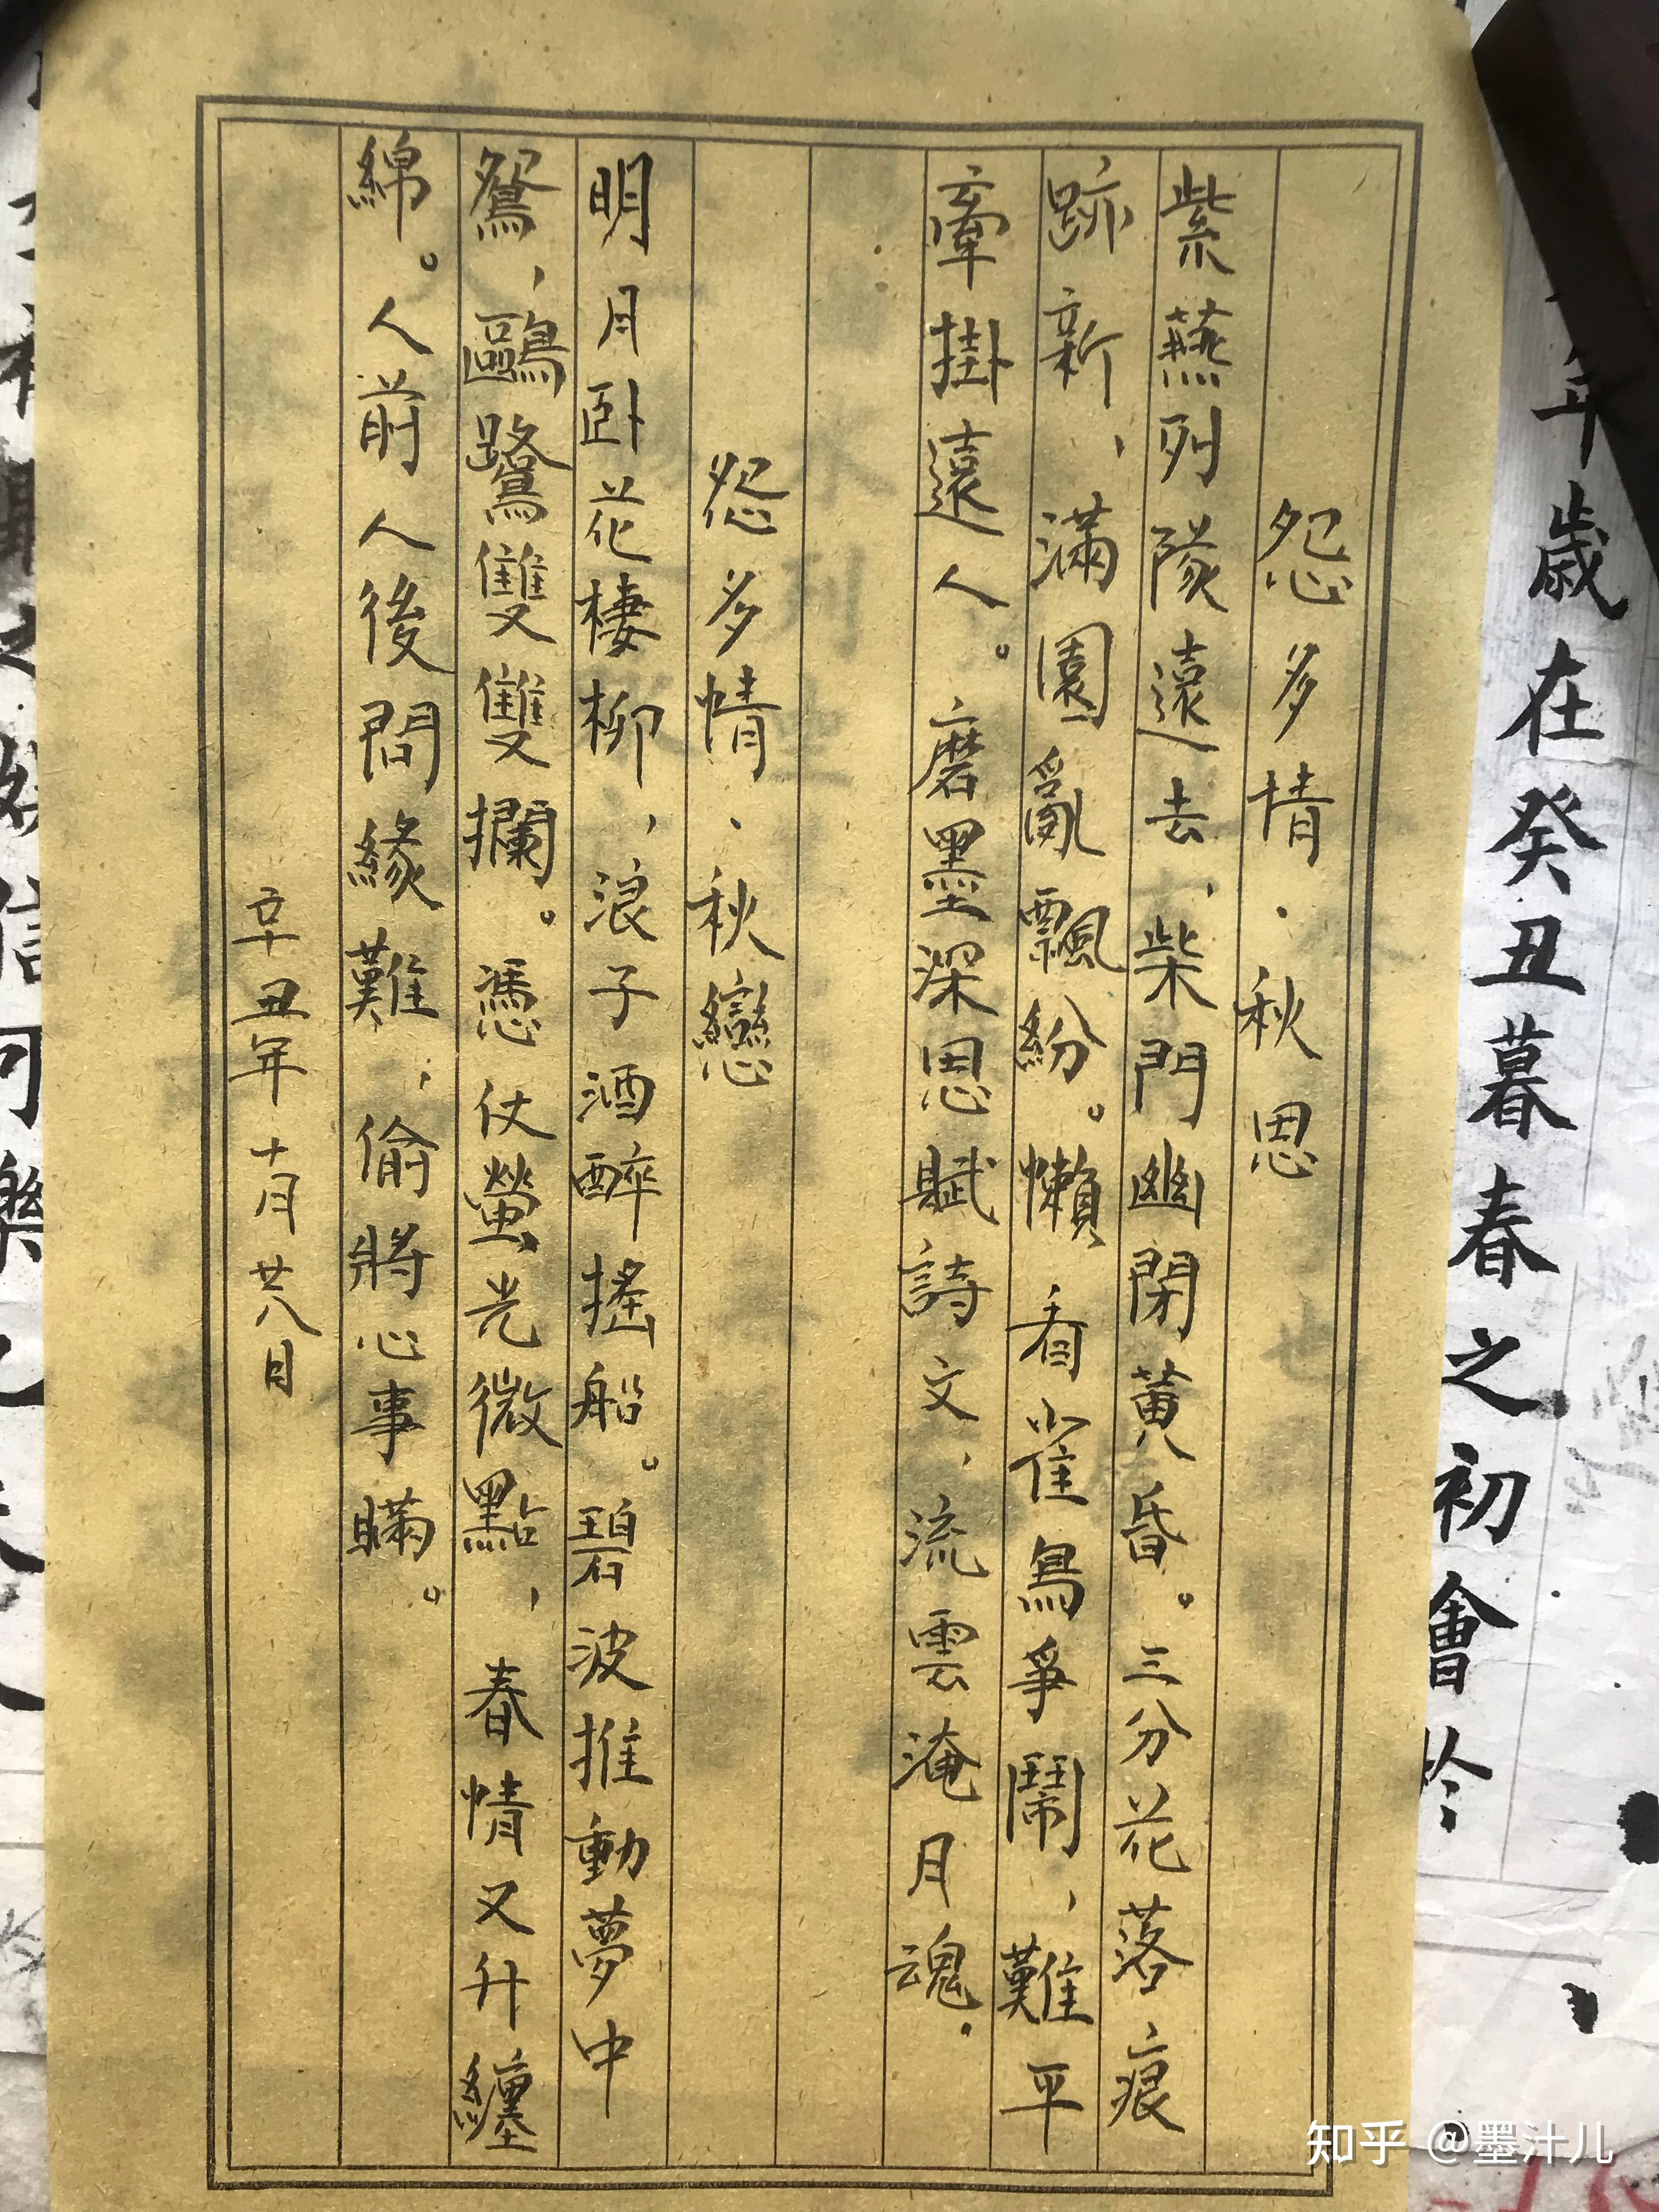 怨多情·秋思
紫燕列隊遠去，柴門幽閉黃昏。三分花落痕
跡新，滿園亂飄紛。懶看雀鳥爭鬧，難平
牽掛遠人。磨墨深思賦詩文，流雲淹月魂。
怨多情·秋戀
明月卧花棲柳，浪子酒醉搖船。碧波推動夢中
鴛，鷗鷺雙雙攔。憑仗螢光微點，春情又升纏
綿。人前人後問緣難；偷將心事瞞。
辛丑年十月廿八日
年歲在癸丑暮春之初會於
信可樂也
知乎 @墨汁儿